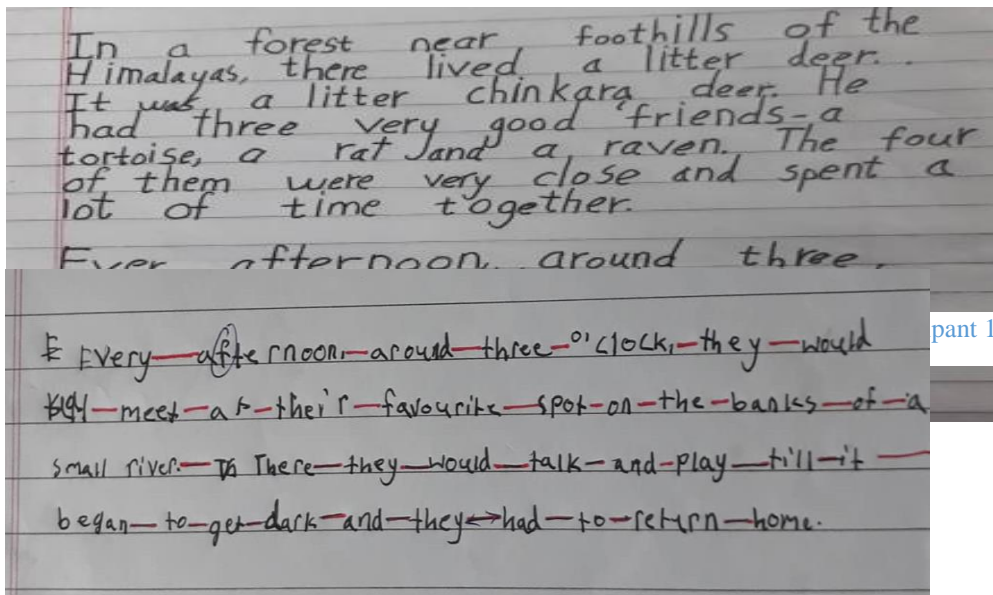 In a forest near foothills of the
Himalayas, there lived a litter deer.
It was a litter chinkara deer. He
had three very good friends - a
tortoise, a rat and a raven. The four
of them were very close and spent a
lot of time together.
Ever afternoon, around three
pant 1
E Every afternoon, around three o'clock, they would
meet at their favourite spot on the banks of a
small river. There they would talk and play till it
began to get dark and they had to return home.